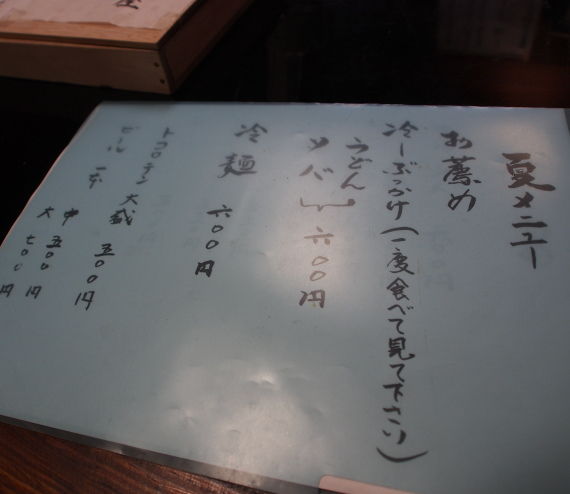 夏メニュー
お薦め
冷しぶっかけ(一度食べて見て下さい)
うどん
ソバ 六〇〇円
冷麺 六〇〇円
トコロテン大盛 五〇〇円
ビール 一本 中 五〇〇円
大 七〇〇円